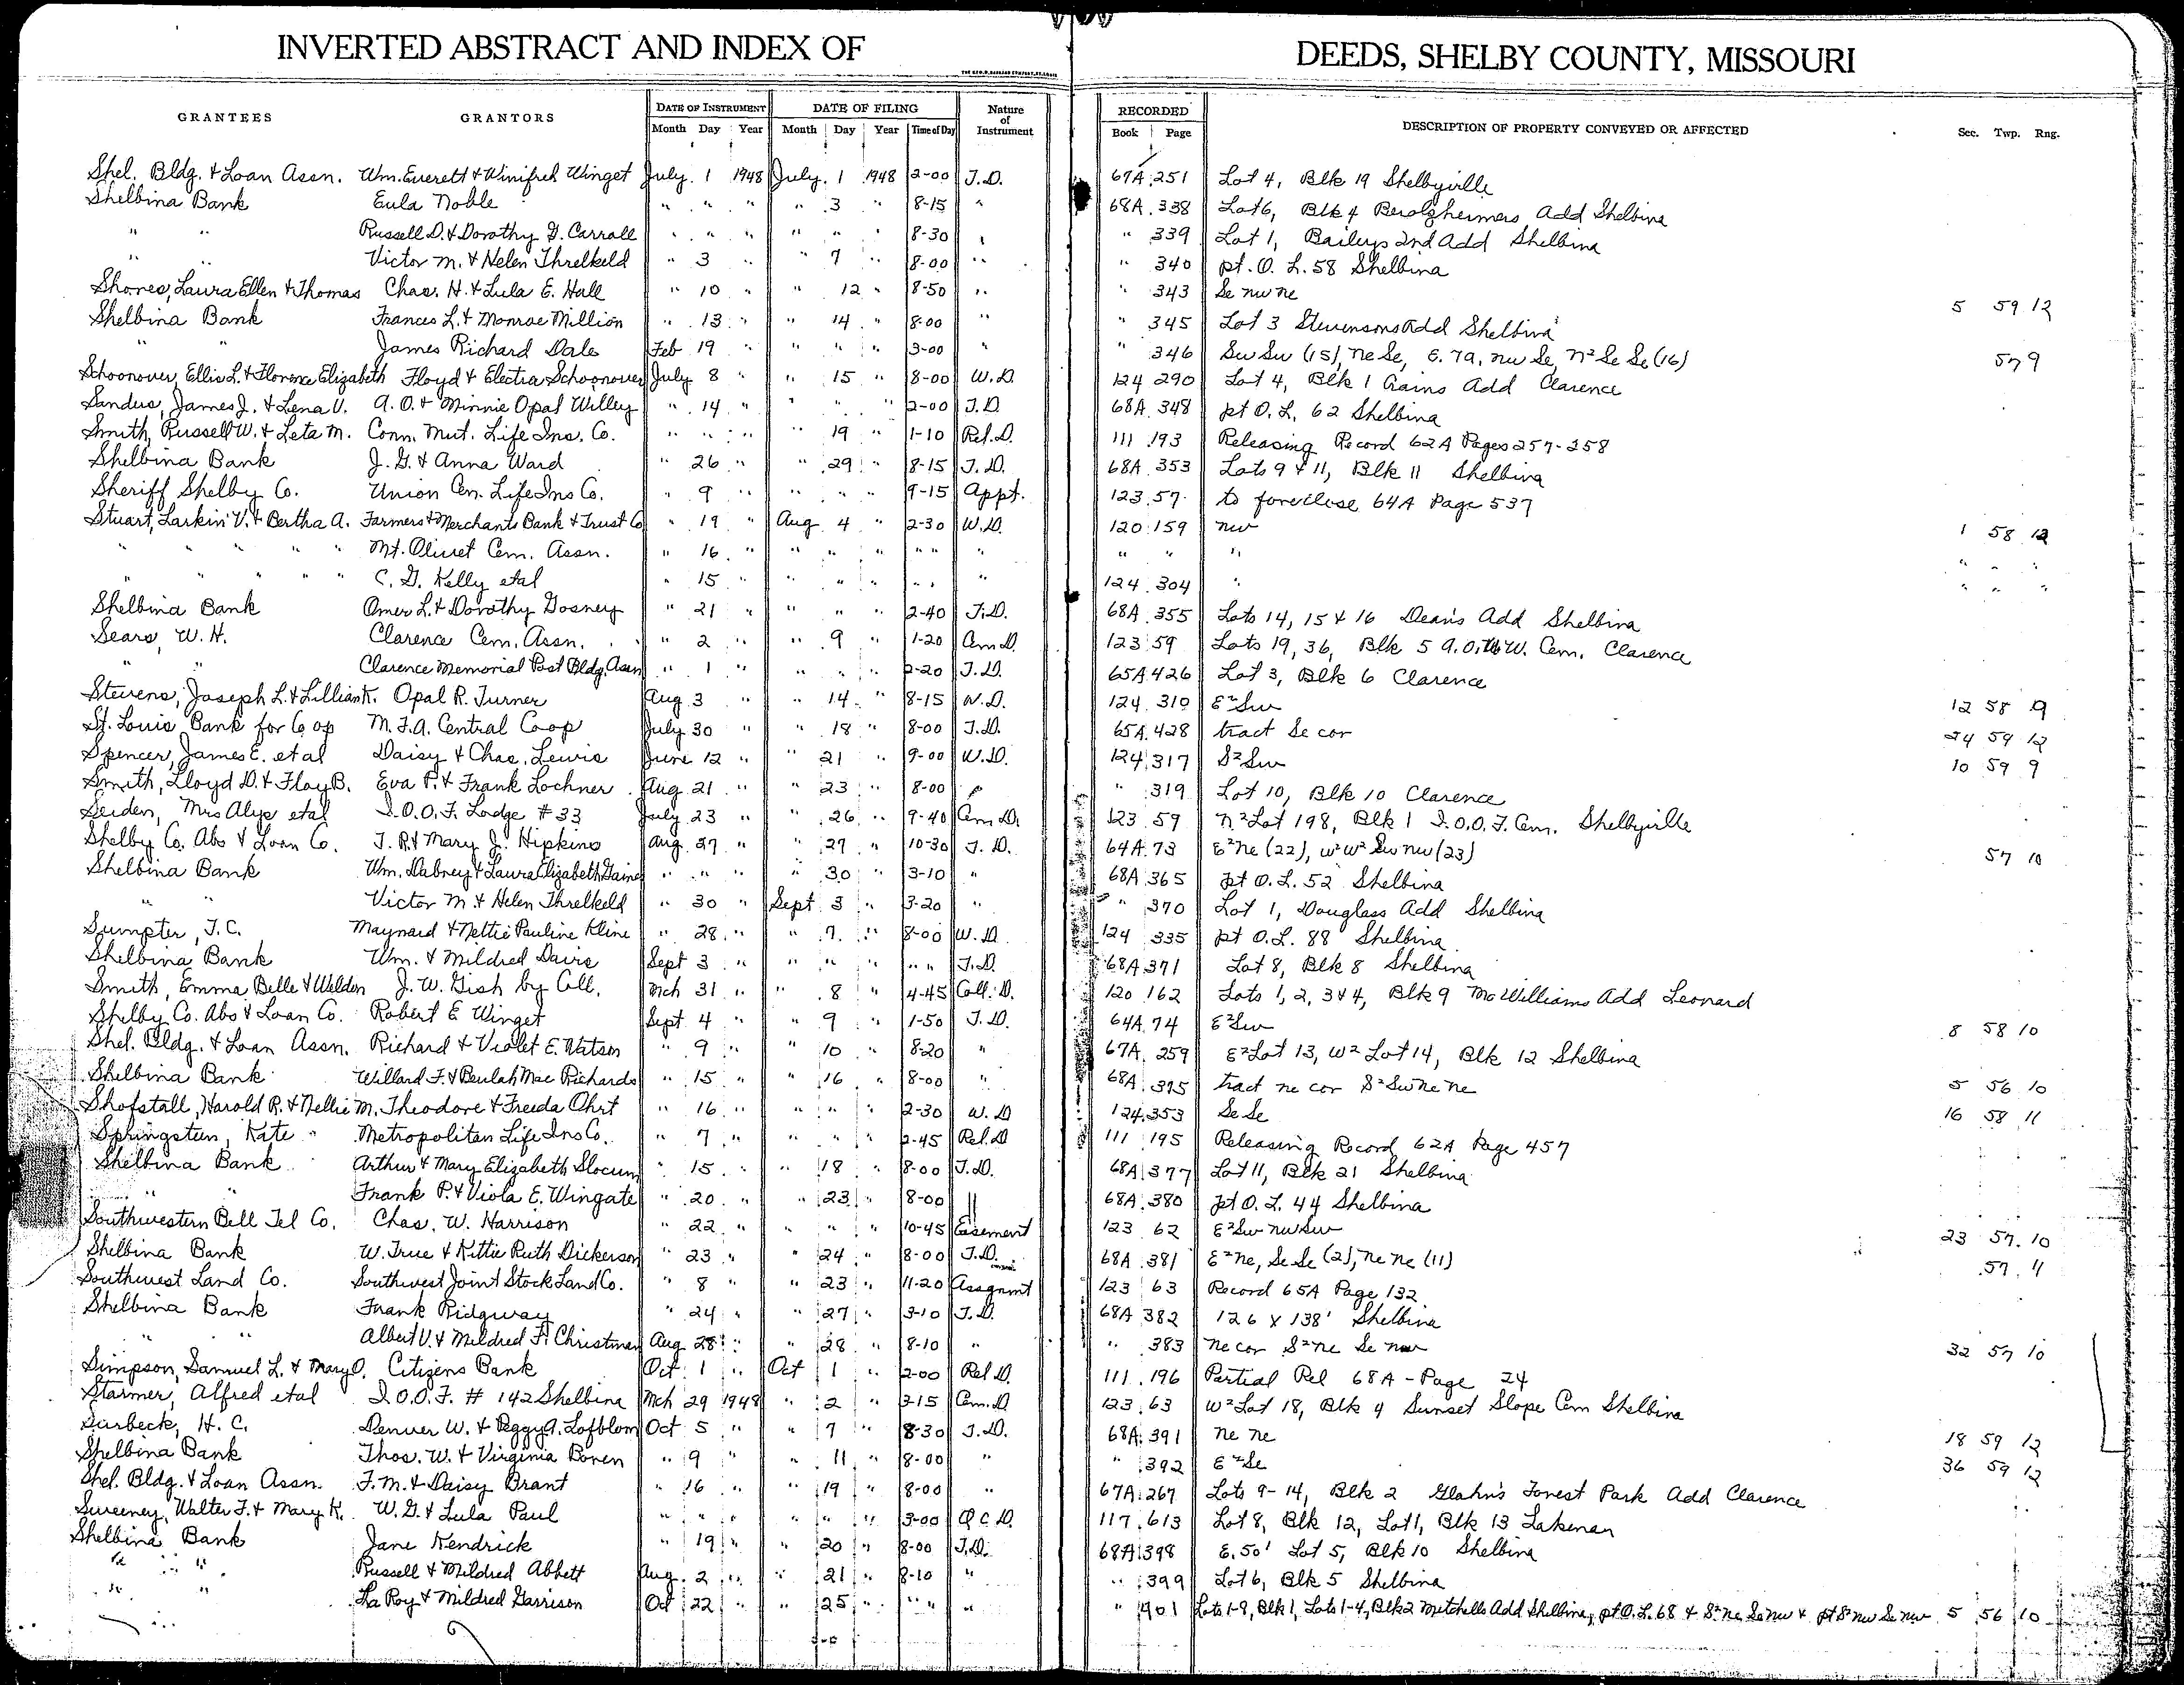 INVERTED ABSTRACT AND INDEX OF DEEDS, SHELBY COUNTY, MISSOURI
GRANTEES GRANTORS DATE OF INSTRUMENT DATE OF FILING Nature of Instrument RECORDED DESCRIPTION OF PROPERTY CONVEYED OR AFFECTED Sec. Twp. Rng.
Month Day Year Month Day Year Time of Day Book Page
Shel. Bldg. & Loan Assn. Wm. Everett & Winifred Winget July 1 1948 July 1 1948 2-00 T.D. 67A 251 Lot 4, Blk 19 Shelbyville
Shelbina Bank Eula Noble " " " " 3 " 8-15 " 68A 338 Lot 6, Blk 4 Berolzheimers Add Shelbina
" " Russell D. & Dorothy G. Carroll " " " " " " 8-30 " " 339 Lot 1, Baileys 2nd Add Shelbina
" " Victor M. & Helen Threlkeld " 3 " " 7 " 8-00 " " 340 pt. O. L. 58 Shelbina
Shores, Laura Ellen & Thomas Chas. H. & Lula E. Hall " 10 " " 12 " 8-50 " " 343 Se nw ne 5 59 12
Shelbina Bank Frances L. & Monroe Million " 13 " " 14 " 8-00 " " 345 Lot 3 Stevensons Add Shelbina
" " James Richard Dale Feb 19 " " " " 3-00 " " 346 Sw Sw (15), Ne Se, E. 7a, nw Se, N² Se Se (16) 57 9
Schoonover, Ellis L. & Florence Elizabeth Floyd & Electra Schoonover July 8 " " 15 " 8-00 W.D. 124 290 Lot 4, Blk 1 Gains Add Clarence
Sandus, James J. & Lena V. A. O. & Minnie Opal Willey " 14 " " " " 2-00 T.D. 68A 348 pt O. L. 62 Shelbina
Smith, Russell W. & Leta M. Conn. Mut. Life Ins. Co. " " " " 19 " 1-10 Rel. D. 111 193 Releasing Record 62A Pages 257-258
Shelbina Bank J. G. & Anna Ward " 26 " " 29 " 8-15 T.D. 68A 353 Lots 9 & 11, Blk 11 Shelbina
Sheriff Shelby Co. Union Cen. Life Ins Co. " 9 " " " " 9-15 Appt. 123 57 to foreclose 64A Page 537
Stuart, Larkin V. & Bertha A. Farmers & Merchants Bank & Trust Co " 19 " Aug 4 " 2-30 W.D. 120 159 nw 1 58 12
" " " " " Mt. Olivet Cem. Assn. " 16 " " " " " " " " " " " " "
" " " " " C. G. Kelly etal " 15 " " " " " " " 124 304 " " " "
Shelbina Bank Omer L. & Dorothy Gosney " 21 " " " " 2-40 T.D. 68A 355 Lots 14, 15 & 16 Dean's Add Shelbina
Sears, W. H. Clarence Cem. Assn. " 2 " " 9 " 1-20 Cem D. 123 59 Lots 19, 36, Blk 5 A.O.U.W. Cem. Clarence
" " Clarence Memorial Post Bldg. Assn " 1 " " " " 2-20 T.D. 65A 426 Lot 3, Blk 6 Clarence
Stevens, Joseph L. & Lillian K. Opal R. Turner Aug 3 " " 14 " 8-15 W.D. 124 310 E² Sw 12 58 9
St. Louis Bank for Co op M.F.A. Central Co-op July 30 " " 18 " 8-00 T.D. 65A 428 tract Se cor 24 59 12
Spencer, James E. et al Daisy & Chas. Lewis June 12 " " 21 " 9-00 W.D. 124 317 S² Sw 10 59 9
Smith, Lloyd D. & Floy B. Eva P. & Frank Lochner Aug 21 " " 23 " 8-00 " " 319 Lot 10, Blk 10 Clarence
Seiden, Mrs Alys etal I.O.O.F. Lodge # 33 July 23 " " 26 " 9-40 Cem D. 123 59 N² Lot 198, Blk 1 I.O.O.F. Cem. Shelbyville
Shelby Co. Abs & Loan Co. T. R. & Mary J. Hipkins Aug 27 " " 27 " 10-30 T.D. 64A 73 E² Ne (22), W² W² Sw nw (23) 57 10
Shelbina Bank Wm. Dabney & Laura Elizabeth Gaines " " " " 30 " 3-10 " 68A 365 pt O. L. 52 Shelbina
" " Victor M. & Helen Threlkeld " 30 " Sept 3 " 3-20 " " 370 Lot 1, Douglass Add Shelbina
Sumpter, T. C. Maynard & Nettie Pauline Kline " 28 " " 7 " 8-00 W.D 124 335 pt O. L. 88 Shelbina
Shelbina Bank Wm. & Mildred Davis Sept 3 " " " " " " T.D. 68A 371 Lot 8, Blk 8 Shelbina
Smith, Emma Belle & Weldon J. W. Gish by Coll. Mch 31 " " 8 " 4-45 Coll. D. 120 162 Lots 1, 2, 3 & 4, Blk 9 McWilliams Add Leonard
Shelby Co. Abs & Loan Co. Robert E Winget Sept 4 " " 9 " 1-50 T.D. 64A 74 E² Sw 8 58 10
Shel. Bldg. & Loan Assn. Richard & Violet E. Watson " 9 " " 10 " 8-20 " 67A 259 E² Lot 13, W² Lot 14, Blk 12 Shelbina
Shelbina Bank Willard F. & Beulah Mae Richards " 15 " " 16 " 8-00 " 68A 375 tract ne cor S² Sw Ne Ne 5 56 10
Shofstall, Harold R. & Nellie M. Theodore & Freeda Ohrt " 16 " " " " 2-30 W.D 124 353 Se Se 16 58 11
Springsteen, Kate Metropolitan Life Ins Co. " 7 " " " " 2-45 Rel. D 111 195 Releasing Record 62A Page 457
Shelbina Bank Arthur & Mary Elizabeth Slocum " 15 " " 18 " 8-00 T.D. 68A 377 Lot 11, Blk 21 Shelbina
" " Frank P. & Viola E. Wingate " 20 " " 23 " 8-00 " 68A 380 pt O. L. 44 Shelbina
Southwestern Bell Tel Co. Chas. W. Harrison " 22 " " " " 10-45 Easement 123 62 E² Sw nw Sw 23 57 10
Shelbina Bank W. True & Kittie Ruth Dickerson " 23 " " 24 " 8-00 T.D. 68A 381 E² ne, Se Se (2), Ne Ne (11) 57 11
Southwest Land Co. Southwest Joint Stock Land Co. " 8 " " 23 " 11-20 Assgnmt 123 63 Record 65A Page 132
Shelbina Bank Frank Ridgway " 24 " " 27 " 3-10 T.D. 68A 382 126 x 138' Shelbina
" " Albert V. & Mildred F. Christman Aug 28 " " 28 " 8-10 " " 383 ne cor S² ne Se nw 32 57 10
Simpson, Samuel L. & Mary O. Citizens Bank Oct 1 " Oct 1 " 2-00 Rel D. 111 196 Partial Rel 68A - Page 24
Starmer, Alfred etal I.O.O.F. # 142 Shelbina Mch 29 1948 " 2 " 3-15 Cem. D 123 63 W² Lot 18, Blk 4 Sunset Slope Cem Shelbina
Surbeck, H. C. Denver W. & Peggy A. Lofblom Oct 5 " " 7 " 8-30 T.D. 68A 391 Ne Ne 18 59 12
Shelbina Bank Thos. W. & Virginia Boren " 9 " " 11 " 8-00 " " 392 E² Se 36 59 12
Shel. Bldg. & Loan Assn. F. M. & Daisy Grant " 16 " " 19 " 8-00 " 67A 267 Lots 9-14, Blk 2 Glahn's Forest Park Add Clarence
Sweeney, Walter F. & Mary K. W. G. & Lula Paul " " " " " " 3-00 Q C D. 117 613 Lot 8, Blk 12, Lot 1, Blk 13 Lakenan
Shelbina Bank Jane Kendrick " 19 " " 20 " 8-00 T.D. 68A 398 E. 50' Lot 5, Blk 10 Shelbina
" " Russell & Mildred Abbett Aug. 2 " " 21 " 8-10 " " 399 Lot 6, Blk 5 Shelbina
" " La Roy & Mildred Garrison Oct 22 " " 25 " " " " " 401 Lots 1-8, Blk 1, Lots 1-4, Blk 2 Mitchells Add Shelbina, pt O. L. 68 & S² ne Se nw & pt S² nw Se nw 5 56 10